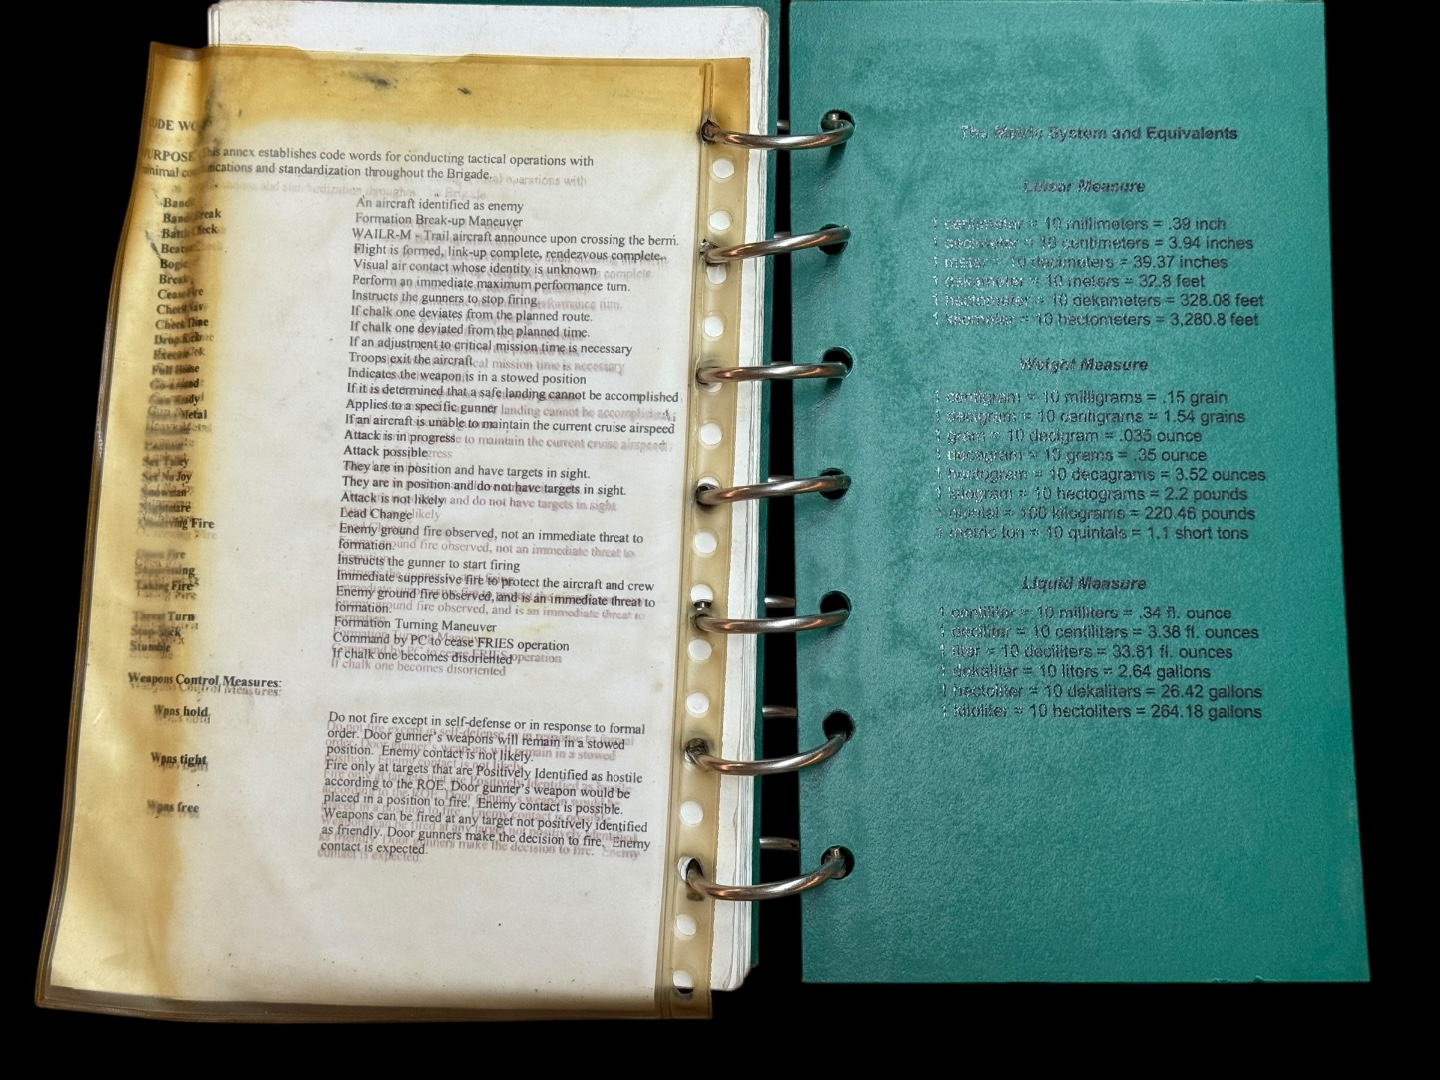 CODE WO
PURPOSE This annex establishes code words for conducting tactical operations with
minimal communications and standardization throughout the Brigade.
Bandit An aircraft identified as enemy
Band Break Formation Break-up Maneuver
Battle Check WAILR-M - Trail aircraft announce upon crossing the berm.
Flight is formed, link-up complete, rendezvous complete.
Bogie Visual air contact whose identity is unknown
Break Perform an immediate maximum performance turn.
Cease Fire Instructs the gunners to stop firing.
Check Nav If chalk one deviates from the planned route.
Check Time If chalk one deviated from the planned time.
If an adjustment to critical mission time is necessary
Troops exit the aircraft
Indicates the weapon is in a stowed position
If it is determined that a safe landing cannot be accomplished
Applies to a specific gunner
Metal If an aircraft is unable to maintain the current cruise airspeed
Attack is in progress
Attack possible
They are in position and have targets in sight.
No Joy They are in position and do not have targets in sight.
Snowman Attack is not likely
Nightmare Lead Change
Observing Fire Enemy ground fire observed, not an immediate threat to
formation.
Open Fire Instructs the gunner to start firing
Immediate suppressive fire to protect the aircraft and crew
Taking Fire Enemy ground fire observed, and is an immediate threat to
formation.
Turn Formation Turning Maneuver
Command by PC to cease FRIES operation
Stumble If chalk one becomes disoriented
Weapons Control Measures:
Wpns hold Do not fire except in self-defense or in response to formal
order. Door gunner's weapons will remain in a stowed
position. Enemy contact is not likely.
Wpns tight Fire only at targets that are Positively Identified as hostile
according to the ROE. Door gunner's weapon would be
placed in a position to fire. Enemy contact is possible.
Wpns free Weapons can be fired at any target not positively identified
as friendly. Door gunners make the decision to fire. Enemy
contact is expected.
The Metric System and Equivalents
Linear Measure
1 centimeter = 10 millimeters = .39 inch
1 decimeter = 10 centimeters = 3.94 inches
1 meter = 10 decimeters = 39.37 inches
1 dekameter = 10 meters = 32.8 feet
1 hectometer = 10 dekameters = 328.08 feet
1 kilometer = 10 hectometers = 3,280.8 feet
Weight Measure
1 centigram = 10 milligrams = .15 grain
1 decigram = 10 centigrams = 1.54 grains
1 gram = 10 decigram = .035 ounce
1 decagram = 10 grams = .35 ounce
1 hectogram = 10 decagrams = 3.52 ounces
1 kilogram = 10 hectograms = 2.2 pounds
1 quintal = 100 kilograms = 220.46 pounds
1 metric ton = 10 quintals = 1.1 short tons
Liquid Measure
1 centiliter = 10 milliters = .34 fl. ounce
1 deciliter = 10 centiliters = 3.38 fl. ounces
1 liter = 10 deciliters = 33.81 fl. ounces
1 dekaliter = 10 liters = 2.64 gallons
1 hectoliter = 10 dekaliters = 26.42 gallons
1 kiloliter = 10 hectoliters = 264.18 gallons